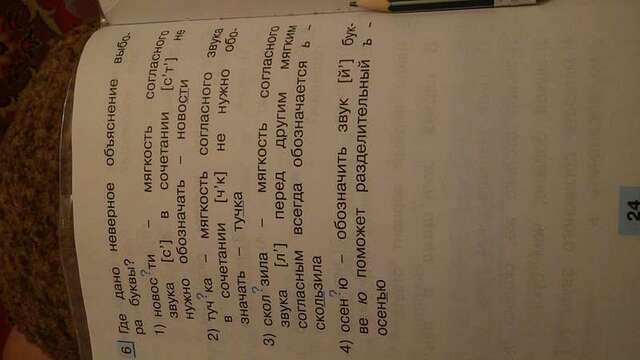 6 Где дано неверное объяснение выбо-
ра буквы?
1) новос?ти – мягкость согласного
звука [с'] в сочетании [с'т'] не
нужно обозначать – новости
2) туч?ка – мягкость согласного звука
в сочетании [ч'к] не нужно обо-
значать – тучка
3) скол?зила – мягкость согласного
звука [л'] перед другим мягким
согласным всегда обозначается ь –
скользила
4) осен?ю – обозначить звук [й'] бук-
ве ю поможет разделительный ъ –
осенъю
24